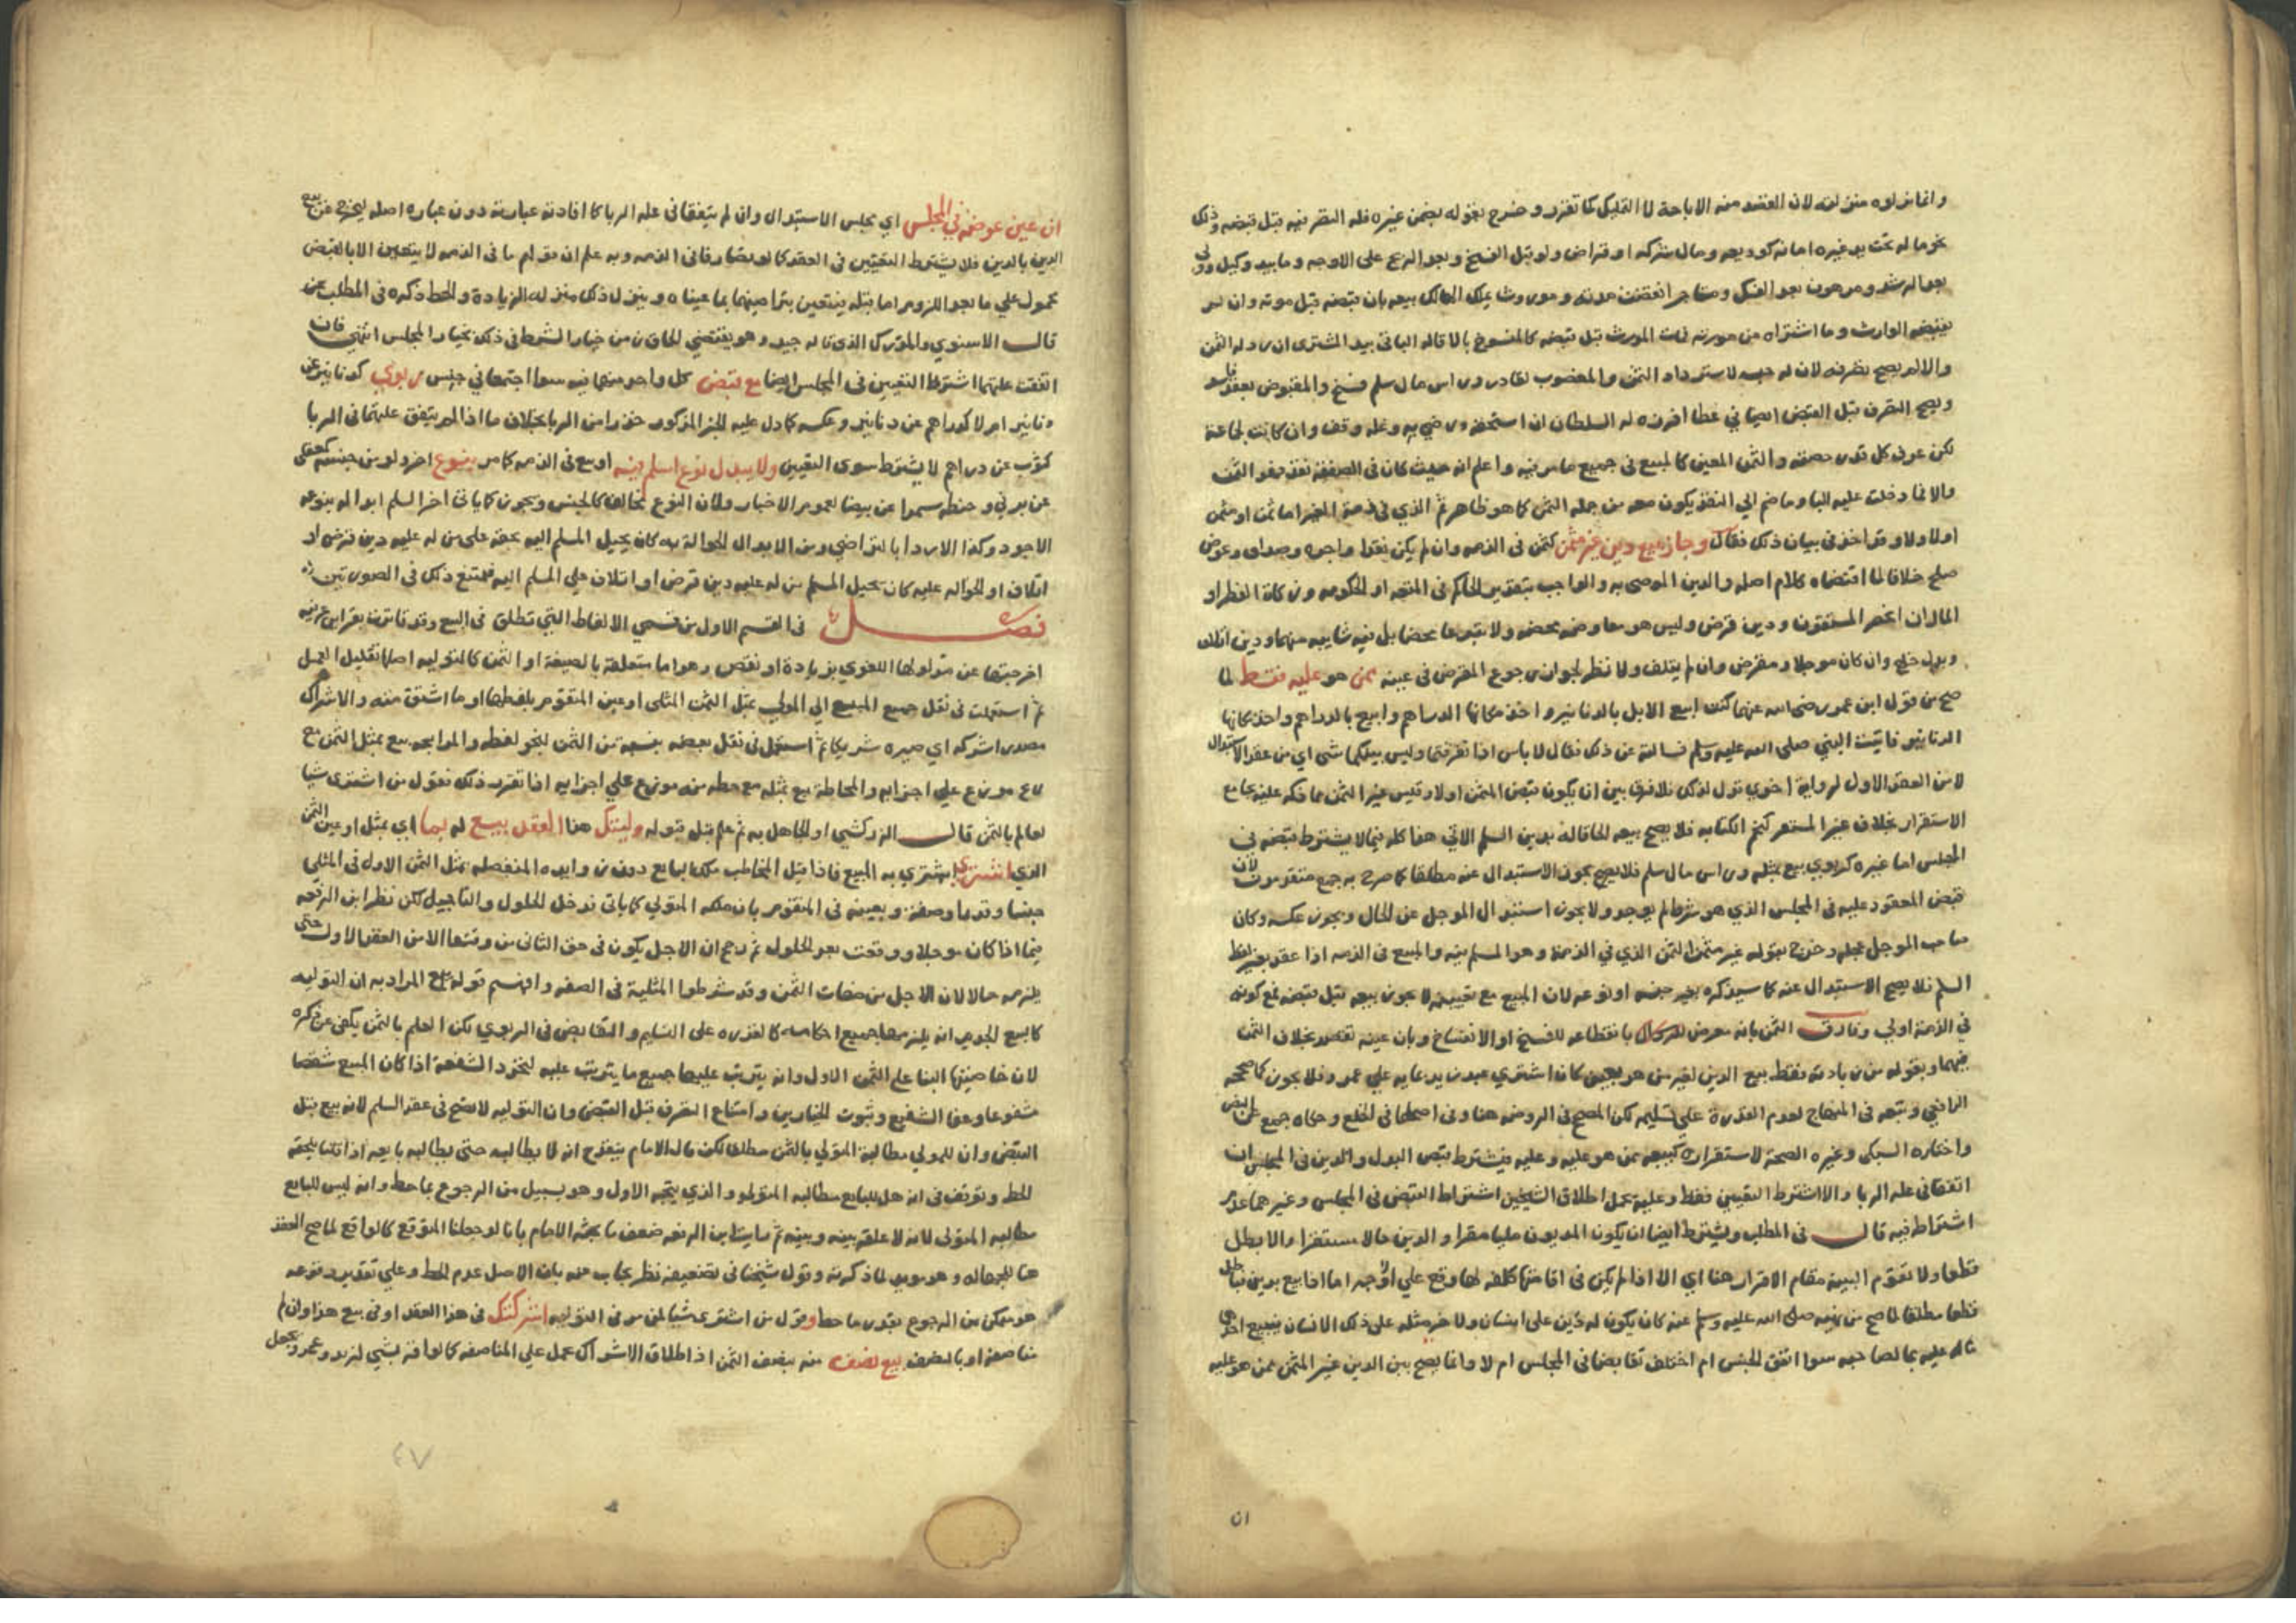 وانما نزلوه منزلته لان القصد منه الاباحة لا التمليك كما تقرر وخرج بقوله بضمن غيره فله التصرف فيه قبل قبضه وذلك
نحو ماله تحت يد غيره امانه كوديعه ومال شركه او قراض ولو قبل الفسخ وبعد الربح على الاوجه وما بيد وكيل وولى
بعد الرشد ومرهون بعد الفك ومستاجر انقضت مدته وموروث يملك الهالك بيعه بان قبضه قبل موته وان لم
يقبضه الوارث وما اشتراه من مورثه فمات المورث قبل قبضه كالمفسوخ بالاقاله الباقى بيد المشترى ان رد له الثمن
والا لم يصح تصرفه لان له حبسه لاسترداد الثمن والمغصوب لقادر وراس مال سلم فسخ والمقبوض بعقد فاسد
ويصح التصرف قبل القبض ايضا في عطا افرزه له السلطان ان استحقه ورضي به وغله وقف وان كانت لجماعة
لكن عرف كل قدر حصته والثمن المعين كالمبيع في جميع ما مر فيه واعلم انه حيث كان فى الصفقة نقد فهو الثمن
والا فما دخلت عليه البا وما ضم الي النقد يكون معه من جمله الثمن كما هو ظاهر ثم الذي فى ذمة الغير اما ثمن او مثمن
اولا ولا وقد اخذ في بيان ذلك فقال وجاز بيع دين غير مثمن كثمن فى الذمه وان لم يكن نقدا واجره وصداق وعوض
صلح خلافا لما اقتضاه كلام اصله والدين الموصى به والواجب بتقدير الحاكم فى المتعه او الحكومه وزكاة الفطر او
المال ان انحصر المستحقون ودين قرض وليس هو معاوضه محضه ولا تبرعا محضا بل فيه شايبه منهما ودين اتلاف
وبدل خلع وان كان موجلا ومقرض وان لم يتلف ولا نظر لجواز رجوع المقرض فى عينه ممن هو عليه فقط لما
صح من قول ابن عمر رضى الله عنهما كنت ابيع الابل بالدنانير واخذ مكانها الدراهم وابيع بالدراهم واخذ مكانها
الدنانير فاتيت النبي صلى الله عليه وسلم فسالته عن ذلك فقال لا باس اذا تفرقتما وليس بينكما شى اي من عقد الاستبدال
لا من العقد الاول لرواية اخري تدل لذلك فلا فرق بين ان يكون قبض المثمن اولا وقيس غير الثمن مما ذكر عليه بجامع
الاستقرار بخلاف غير المستقر كنجم الكتابه فلا يصح بيعه الحاقا له بدين السلم الاتي هذا كله فيما لا يشترط قبضه فى
المجلس اما غيره كربوي بيع بمثله وراس مال سلم فلا يصح بجوز الاستبدال عنه مطلقا كما صرح به جمع متقدمون لان
قبض المعقود عليه فى المجلس الذي هو شرط لم يوجد ولا يجوز استبدال الموجل عن الحال ويجوز عكسه وكان
صاحب الموجل عجله وخرج بقوله غير مثمن المثمن الذي في الذمة وهو المسلم فيه والمبيع فى الذمه اذا عقد بغير لفظ
السلم فلا يصح الاستبدال عنه كما سيذكره بغير جنسه او نوعه لان المبيع مع تعيينه لا يجوز بيعه قبل قبضه فمع كونه
في الذمة اولى وفارق الثمن بانه معرض بانقطاعه للفسخ او الانفساخ وبان عينه تقصد بخلاف الثمن
فيهما وبقوله من زيادته فقط بيع الدين لغير من هو عليه كان اشتري عبد زيد بمايه على عمرو فلا يجوز كما صححه
الرافعي وتبعه فى المنهاج لعدم القدرة على تسليمه لكن المصحح فى الروضه هنا وفى اصلها فى الخلع وحكاه جمع عن النص
واختاره السبكى وغيره الصحة لاستقراره كبيعه ممن هو عليه وعليه فيشترط قبض البدل والدين فى المجلس ان
اتفقا فى عله الربا والا اشترط التعيين فقط وعليه يحمل اطلاق الشيخين اشتراط القبض فى المجلس وغيرهما عدم
اشتراطه فيه قال فى المطلب ويشترط ايضا ان يكون المديون مليا مقرا والدين حالا مستقرا والا بطل
قطعا ولا تقوم البينه مقام الاقرار هنا اي الا اذا لم يكن فى اقامتها كلفه لها وقع علي الاوجه اما اذا بيع بدين فباطل
قطعا مطلقا لما صح من نهيه صلى الله عليه وسلم عنه كان يكون له دين على انسان ولاخر مثله على ذلك الانسان فيبيع احدهما
ماله عليه بما لصاحبه سوا اتفق الجنس ام اختلف تقابضا فى المجلس ام لا وانما يصح بين الدين غير المثمن ممن هو عليه
ان
ان عين عوضه في المجلس اي مجلس الاستبدال وان لم يتفقا فى عله الربا كما افادته عبارته دون عباره اصله ليخرج عن بيع
الدين بالدين فلا يشترط التعيين فى العقد كما لو تصارفا فى الذمه وبه علم ان قولهم ما فى الذمه لا يتعين الا بالقبض
محمول على ما بعد اللزوم اما قبله فيتعين بتراضيهما بما عيناه وينزل ذلك منزله الزيادة والحط ذكره فى المطلب
قال الاسنوي والمدرك الذى قاله جيد وهو يقتضي الحاق زمن خيار الشرط فى ذلك بخيار المجلس انتهى فان
اتفقت علتهما اشترط التعيين فى المجلس ايضا مع قبض كل واحد منهما فيه سوا اجتمعا في جنس ربوي كدنانير عن
دنانير ام لا كدراهم عن دنانير وعكسه كما دل عليه الخبر المذكور حذرا من الربا بخلاف ما اذا لم يتفق علتهما فى الربا
كثوب عن دراهم لا يشترط سوى التعيين ولا يبدل نوع اسلم فيه او بيع فى الذمه كما مر بنوع اخر ولو من جنسه كمعقلى
عن برني وحنطه سمرا عن بيضا لعموم الاخبار ولان النوع يخالف كالجنس ويجوز كما ياتى اخر السلم ابداله بنوعه
الاجود وكذا الاردا بالتراضي ومن الابدال الحوالة به كان يحيل المسلم اليه بحقه على من له عليه دين قرض او
اتلاف او الحواله عليه كان يحيل المسلم من له عليه دين قرض او اتلاف على المسلم اليه فيمتنع ذلك فى الصورتين
فصل فى القسم الاول من قسمي الالفاظ التي تطلق فى البيع وقد قارنتها قراين عرفيه
اخرجتها عن مدلولها اللغوي بزيادة او نقص وهو اما متعلقة بالصيغة او الثمن كالتوليه اصلها تقليد العمل
ثم استعملت فى نقل جميع المبيع الي المولى بمثل الثمن المثلى او عين المتقوم بلفظها او ما اشتق منه والاشراك
مصدر اشركه اي صيره شريكا ثم استعمل فى نقل بعضه بنسبته من الثمن بنحو لفظه والمرابحه بيع بمثل الثمن مع
ربح موزع على اجزايه والمحاطة بيع بمثله مع حطه منه موزع على اجزايه اذا تقرر ذلك فقول من اشترى شيا
لعالم بالثمن قال الزركشي او الجاهل به ثم علم قبل قبوله وليتك هذا العقد بيع له بما اي بمثل او عين الثمن
الذي اشترى اشتري به المبيع فاذا قبل المخاطب ملك المبيع دون زوايده المنفصله بمثل الثمن الاول فى المثلي
جنسا وقدرا وصفة وبعينه فى المتقوم بان ملكه المتولي كما ياتى فدخل الحلول والتاجيل لكن نظر ابن الرفعه
فيما اذا كان موجلا ووقعت بعد الحلول ثم رجح ان الاجل يكون فى حق الثانى من وقتها لا من العقد الاول حتى
يلزمه حالا لان الاجل من صفات الثمن وقد شرطوا المثلية فى الصفه وافهم قوله بيع المراد به ان التوليه
كالبيع الجديد انه يلزمها جميع احكامه كالقدره على التسليم والتقابض فى الربوي لكن العلم بالثمن يكفى عن ذكره
لان خاصيتها البنا على الثمن الاول وانه يترتب عليها جميع ما يترتب عليه كتجدد الشفعة اذا كان المبيع شقصا
مشفوعا وعفا الشفيع وثبوت الخيارين وامتناع التصرف قبل القبض وان التوليه لا تصح فى عقد السلم لانه بيع قبل
القبض وان للمولي مطالبة المتولي بالثمن مطلقا لكن قال الامام ينقدح انه لا يطالبه حتى يطالبه بايعه اذا قلنا يلحقه
الحط وتوقف فى انه هل للبايع مطالبه المتولى والذي يتجه الاول وهو بسبيل من الرجوع بما حط وانه ليس للبايع
مطالبه المتولى لانه لا علقه بينه وبينه ثم رايت ابن الرفعه ضعف ما بحثه الامام بانا لو جعلنا المتوقع كالواقع لما صح العقد
هنا للجهاله وهو مويد لما ذكرته وقول شيخنا فى تضعيفه نظر يجاب عنه بان الاصل عدم الحط وعلى تقدير وقوعه
هو متمكن من الرجوع بقدر ما حط وقول من اشترى شيا لمن مر فى التوليه اشركتك فى هذا العقد او فى بيع هذا وان لم
مناصفه او بالنصف بيع نصفه منه بنصف الثمن اذ اطلاق الاشراك يحمل على المناصفه كما لو اقر بشي لزيد وعمرو ويجعل
٤٧